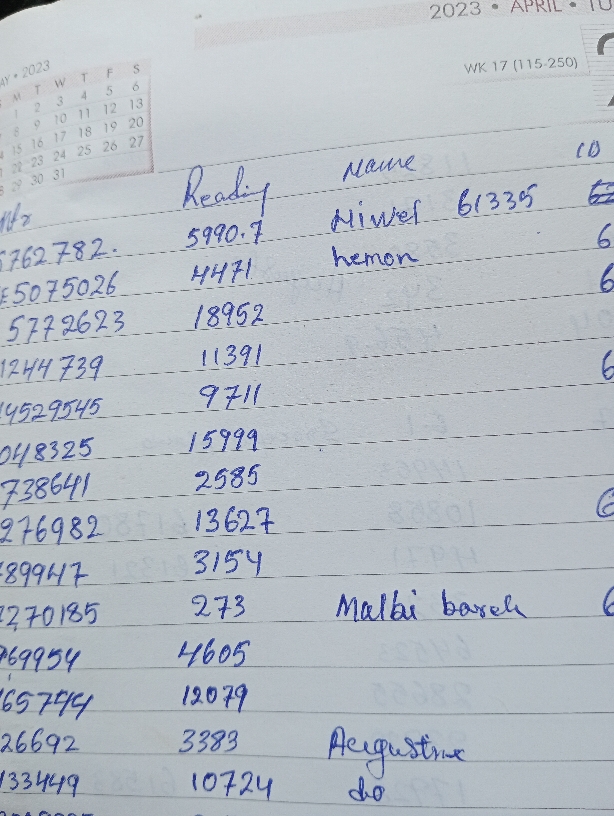 2023 • APRIL • TU
AY • 2023
WK 17 (115-250)
M T W T F S
1 2 3 4 5 6
8 9 10 11 12 13
15 16 17 18 19 20
22 23 24 25 26 27
29 30 31
Reading Name ID
5762782. 5990.7 61335
5075026 4471 hemon 6
5772623 18952 6
1244739 11391
4529545 9711 6
048325 15999
738641 2585
276982 13627 6
899947 3154
2270185 273 Malbi 6
969954 4605
65744 12079
26692 3383 Augustine
133449 10724 do